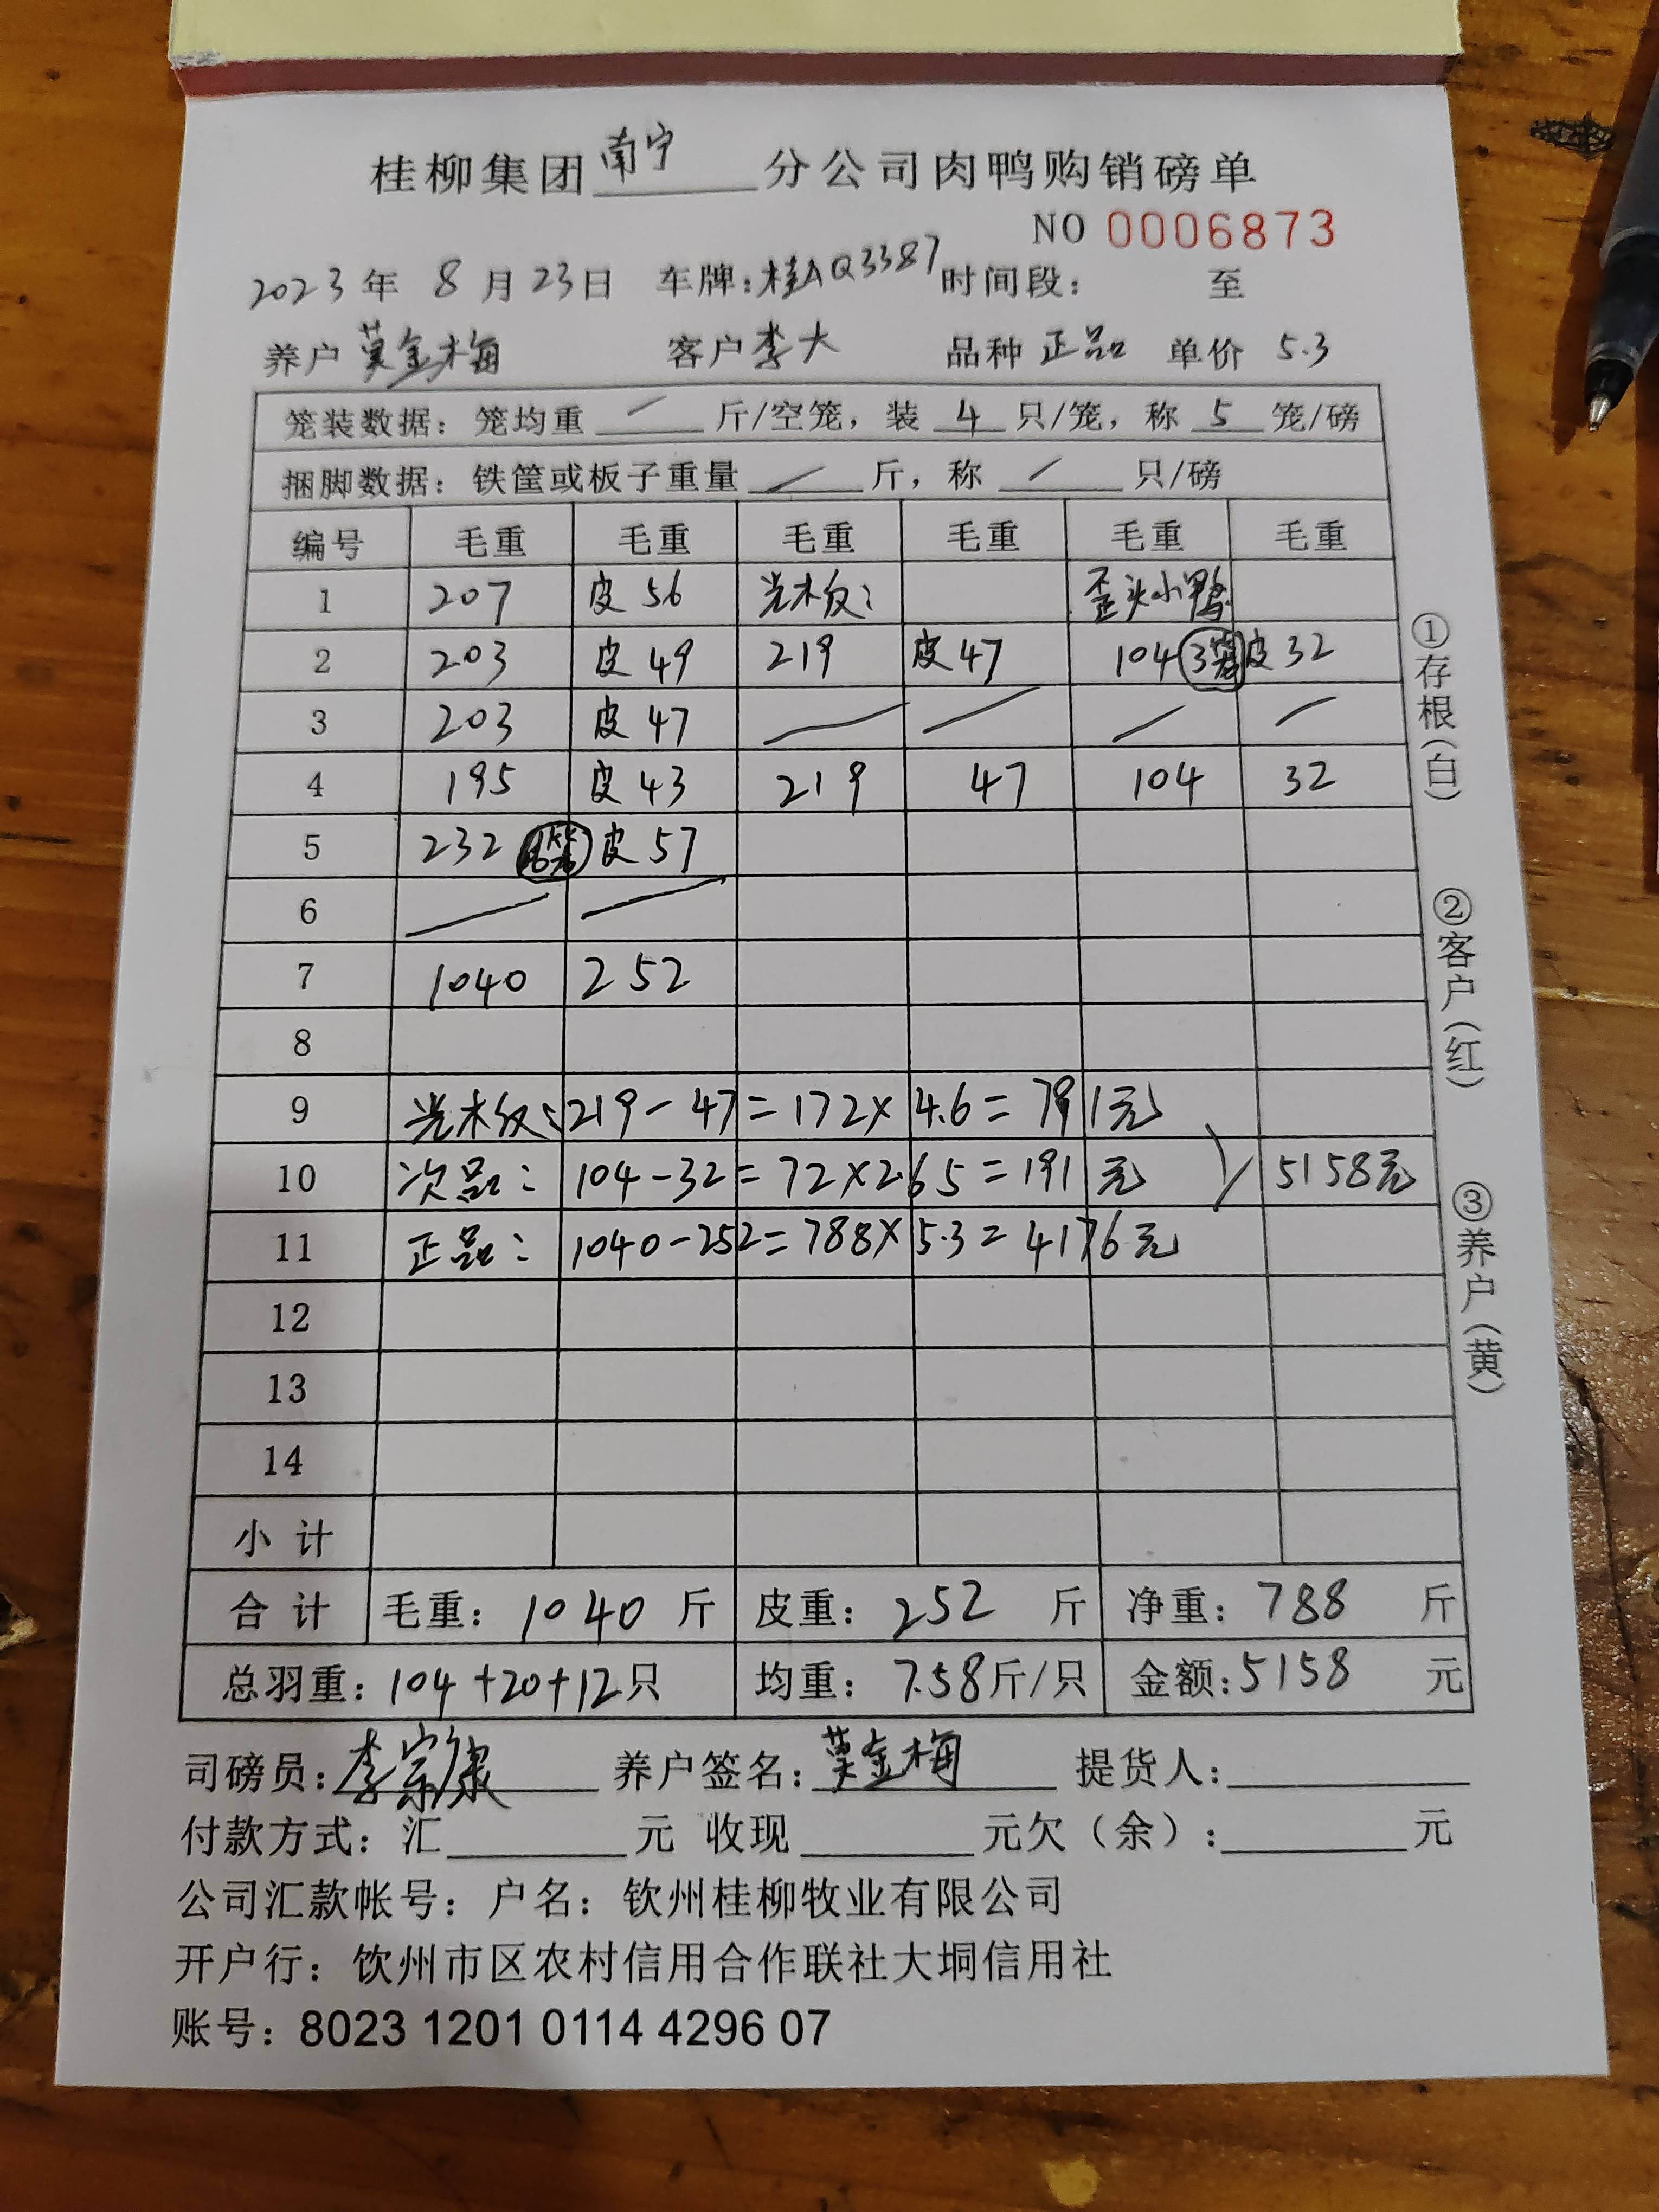 桂柳集团南宁分公司肉鸭购销磅单
NO 0006873
2023年 8月23日 车牌:桂AQ3387 时间段: 至
养户 莫金梅 客户 李大 品种 正品 单价 5.3
笼装数据: 笼均重 / 斤/空笼, 装 4 只/笼, 称 5 笼/磅
捆脚数据: 铁筐或板子重量 / 斤, 称 / 只/磅
编号 毛重 毛重 毛重 毛重 毛重 毛重
1 207 皮56 光木级: 歪头小鸭
2 203 皮49 219 皮47 104 3笼 皮32
3 203 皮47 / / / /
4 195 皮43 219 47 104 32
5 232 6笼 皮57
6 / /
7 1040 252
8
9 光木级: 219-47=172×4.6=791元
10 次品: 104-32=72×2.65=191元 } 5158元
11 正品: 1040-252=788×5.3=4176元
12
13
14
小 计
合 计 毛重: 1040 斤 皮重: 252 斤 净重: 788 斤
总羽重: 104+20+12只 均重: 7.58斤/只 金额:5158 元
司磅员:李宗康 养户签名:莫金梅 提货人:
付款方式: 汇 元 收现 元欠(余): 元
公司汇款帐号: 户名: 钦州桂柳牧业有限公司
开户行: 饮州市区农村信用合作联社大垌信用社
账号: 8023 1201 0114 4296 07
①存根(白)
②客户(红)
③养户(黄)